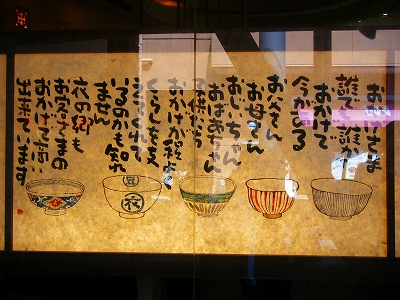 おかげさま
誰でも誰か
おかげで
今がある
お父さん
お母さん
おじいちゃん
おばあちゃん
子供
おかげが
くらしを支え
てくれて
いるのかも知れ
ません
夜の郷も
お客さまの
おかげで商い
出来てます